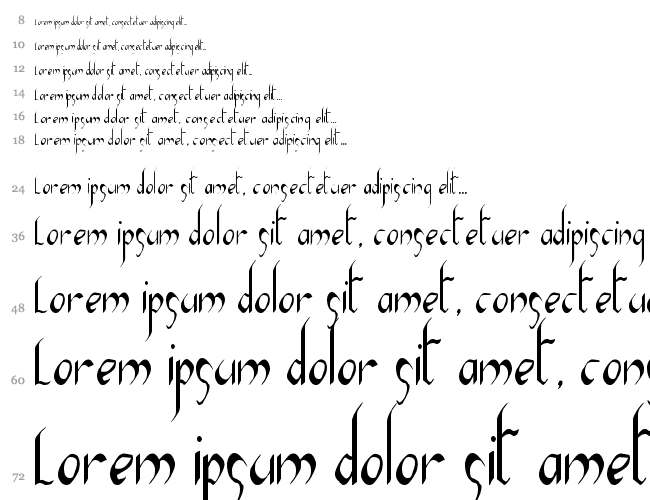 8 Lorem ipsum dolor sit amet, consectetuer adipiscing elit...
10 Lorem ipsum dolor sit amet, consectetuer adipiscing elit...
12 Lorem ipsum dolor sit amet, consectetuer adipiscing elit...
14 Lorem ipsum dolor sit amet, consectetuer adipiscing elit...
16 Lorem ipsum dolor sit amet, consectetuer adipiscing elit...
18 Lorem ipsum dolor sit amet, consectetuer adipiscing elit...
24 Lorem ipsum dolor sit amet, consectetuer adipiscing elit...
36 Lorem ipsum dolor sit amet, consectetuer adipiscing
48 Lorem ipsum dolor sit amet, consectetu
60 Lorem ipsum dolor sit amet, con
72 Lorem ipsum dolor sit amet